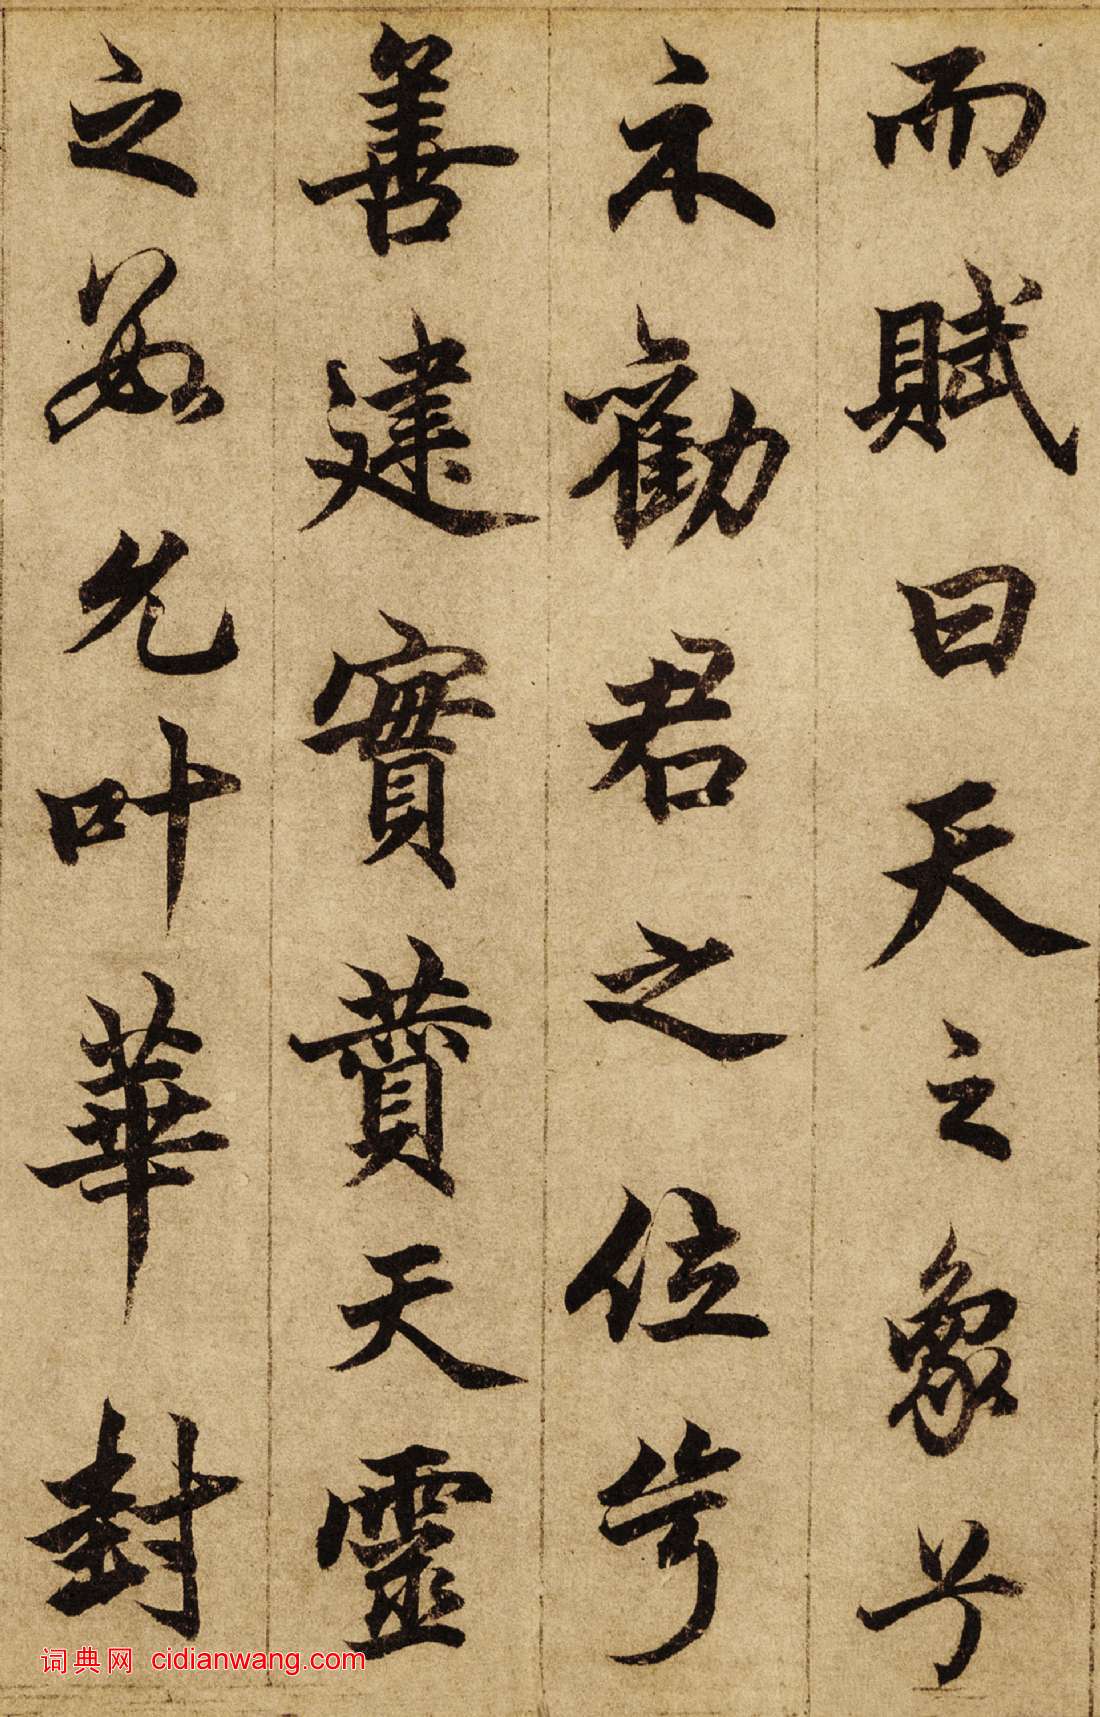 而賦曰天之象兮
示勸君之位兮
善建實蕡天靈
之允叶華封
词典网 cidianwang.com